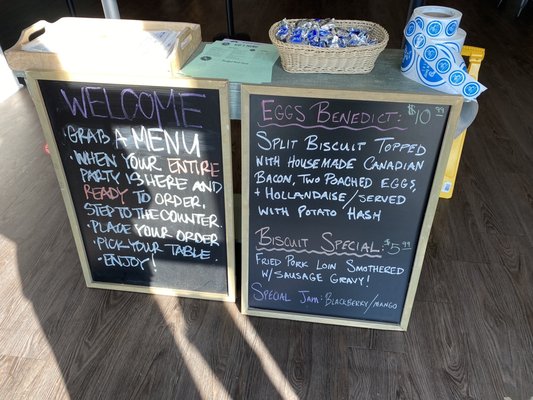 WELCOME
GRAB A MENU
• WHEN YOUR ENTIRE
PARTY IS HERE AND
READY TO ORDER,
STEP TO THE COUNTER.
• PLACE YOUR ORDER
• PICK YOUR TABLE
• ENJOY!
EGGS BENEDICT: $10.99
SPLIT BISCUIT TOPPED
WITH HOUSEMADE CANADIAN
BACON, TWO POACHED EGGS,
+ HOLLANDAISE/SERVED
WITH POTATO HASH
BISCUIT SPECIAL: $5.99
FRIED PORK LOIN SMOTHERED
W/SAUSAGE GRAVY!
SPECIAL JAM: BLACKBERRY/MANGO